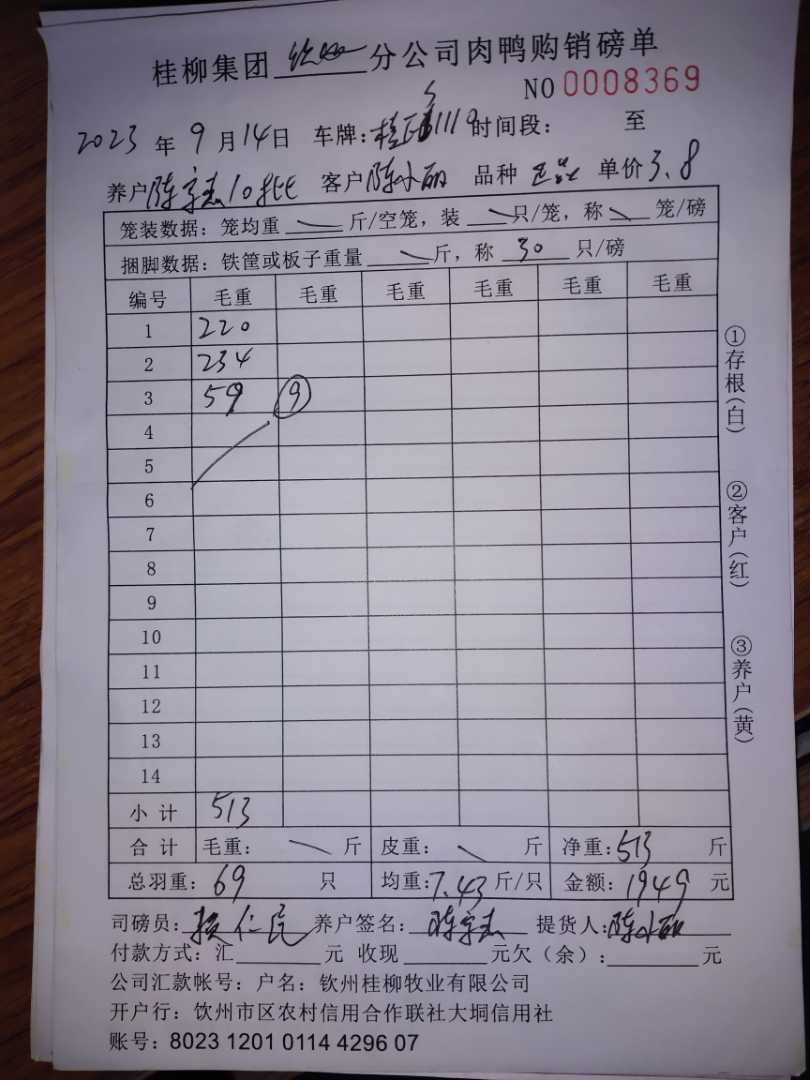 桂柳集团 钦州 分公司肉鸭购销磅单
NO 0008369
2023 年 9 月 14 日 车牌: 时间段: 至
养户 10批 客户 陈小丽 品种 正品 单价 3.8
笼装数据：笼均重 \ 斤/空笼，装 \ 只/笼，称 \ 笼/磅
捆脚数据：铁筐或板子重量 \ 斤，称 30 只/磅
编号 毛重 毛重 毛重 毛重 毛重 毛重
1 220
2 234
3 59 ⑨
4
5
6
7
8
9
10
11
12
13
14
小计 513
合计 毛重： \ 斤 皮重： \ 斤 净重：513 斤
总羽重：69 只 均重：7.43 斤/只 金额：1949 元
司磅员： 养户签名： 提货人：陈小丽
付款方式：汇 元 收现 元欠（余）： 元
公司汇款帐号：户名：钦州桂柳牧业有限公司
开户行：饮州市区农村信用合作联社大垌信用社
账号：8023 1201 0114 4296 07
①存根(白)
②客户(红)
③养户(黄)